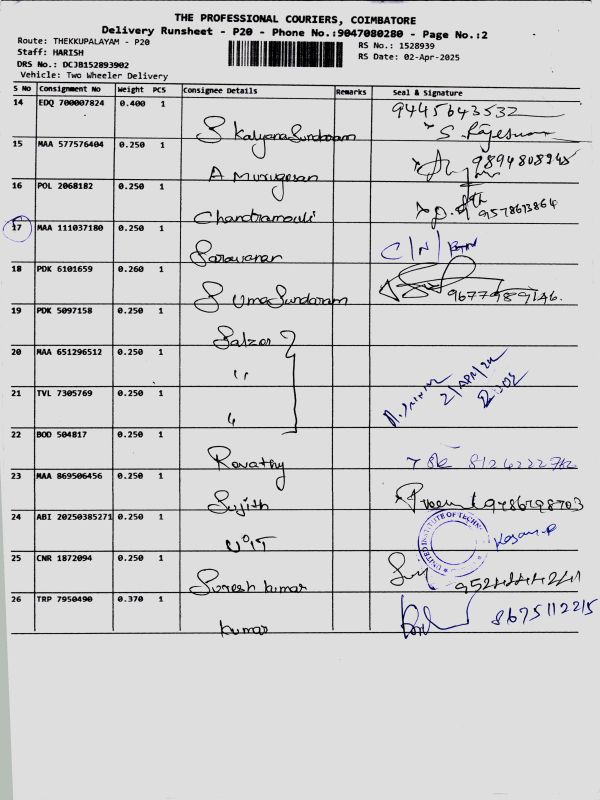 THE PROFESSIONAL COURIERS, COIMBATORE
Delivery Runsheet - P20 - Phone No.:9047080280 - Page No.:2
Route: THEKKUPALAYAM - P20
RS No.: 1528939
Staff: HARISH
RS Date: 02-Apr-2025
DRS No.: DCJB152893902
Vehicle: Two Wheeler Delivery
S No Consignment No Weight PCS Consignee Details Remarks Seal & Signature
14 EDQ 700007824 0.400 1 S KalyanaSundaram 9445643532 S. Rajeswari
15 MAA 577576404 0.250 1 A Murugesan 9894808945
16 POL 2068182 0.250 1 Chandramouli 9578613864
17 MAA 111037180 0.250 1 Saravanan C/N/
18 PDK 6101659 0.260 1 S UmaSundaram 9677989146.
19 PDK 5097158 0.250 1 Salzer
20 MAA 651296512 0.250 1 "
21 TVL 7305769 0.250 1 "
22 BOD 504817 0.250 1 Revathy 8124222712
23 MAA 869506456 0.250 1 Sujith 9486798703
24 ABI 20250385271 0.250 1 UIT UNITED INSTITUTE OF TECHN
25 CNR 1872094 0.250 1 Suresh kumar
26 TRP 7950490 0.370 1 kumar 8675112215